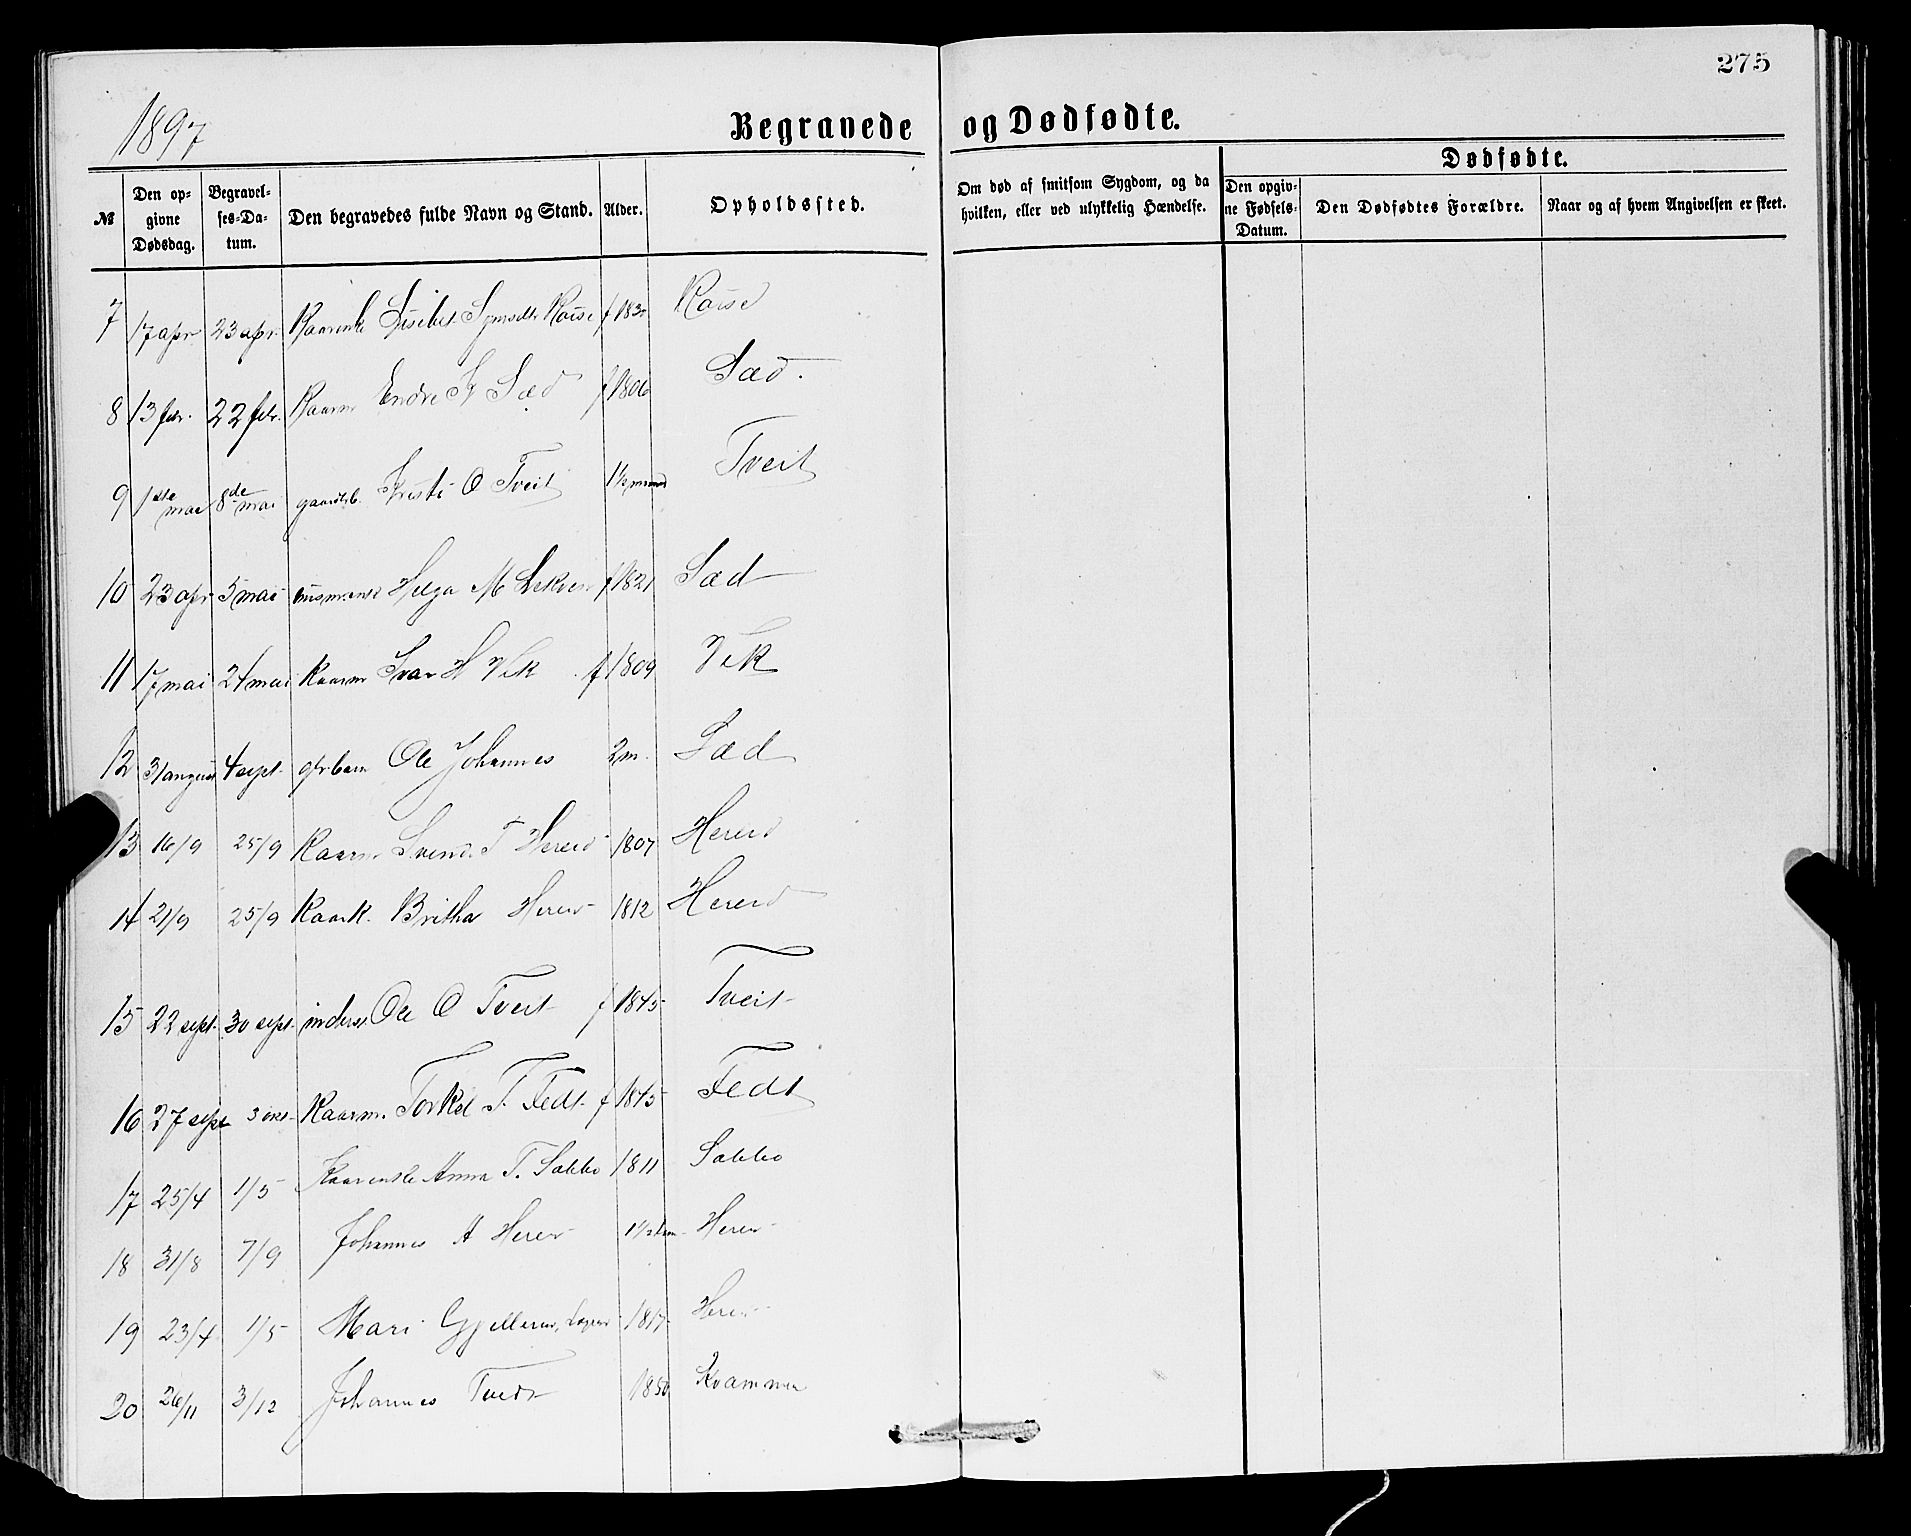 275
1897
Begravede og Dødfødte.
№ Den opgivne Dødsdag. Begravelses-Datum. Den begravedes fulde Navn og Stand. Alder. Opholdssted. Om død af smitsom Sygdom, og da hvilken, eller ved ulykkelig Hændelse. Dødfødte. Den opgivne Fødsels-Datum. Den Dødfødtes Forældre. Naar og af hvem Angivelsen er skeet.
7 17 apr 23 apr. Kaarenke Lisebet f 183
8 13 febr. 22 febr. Kaarm Endre Sæd f 1806 Sæd.
9 1ste mai 8de mai gaardbrb. Kristi O Tveit 1½ maaned Tveit
10 23 apr 5 mai husmansk Helga M Lekve f 1821 Sæd
11 17 mai 24 mai Kaarm Ivar H Vik f 1809 Vik
12 31 august 4 sept. gbr barn Ole Johannes 2 m. Sæd
13 16/9 25/9 Kaarm Svend T Hereid 1807 Hereid
14 21/9 25/9 Kaark. Britha Hereid 1812 Hereid
15 22 sept. 30 sept. inderst Ole O Tveit f 1845 Tveit
16 27 sept 3 okt. Kaarm. Torkel T. Tedt f 1845 Tedt
17 25/4 1/5 Kaarenke Anna T. Sabbo 1811 Sabbo
18 31/8 7/9 Johannes A Hereid 1½ Hereid
19 23/4 1/5 Mari 1817 Hereid
20 26/11 3/12 Johannes Tvedt 1850 Kvammen